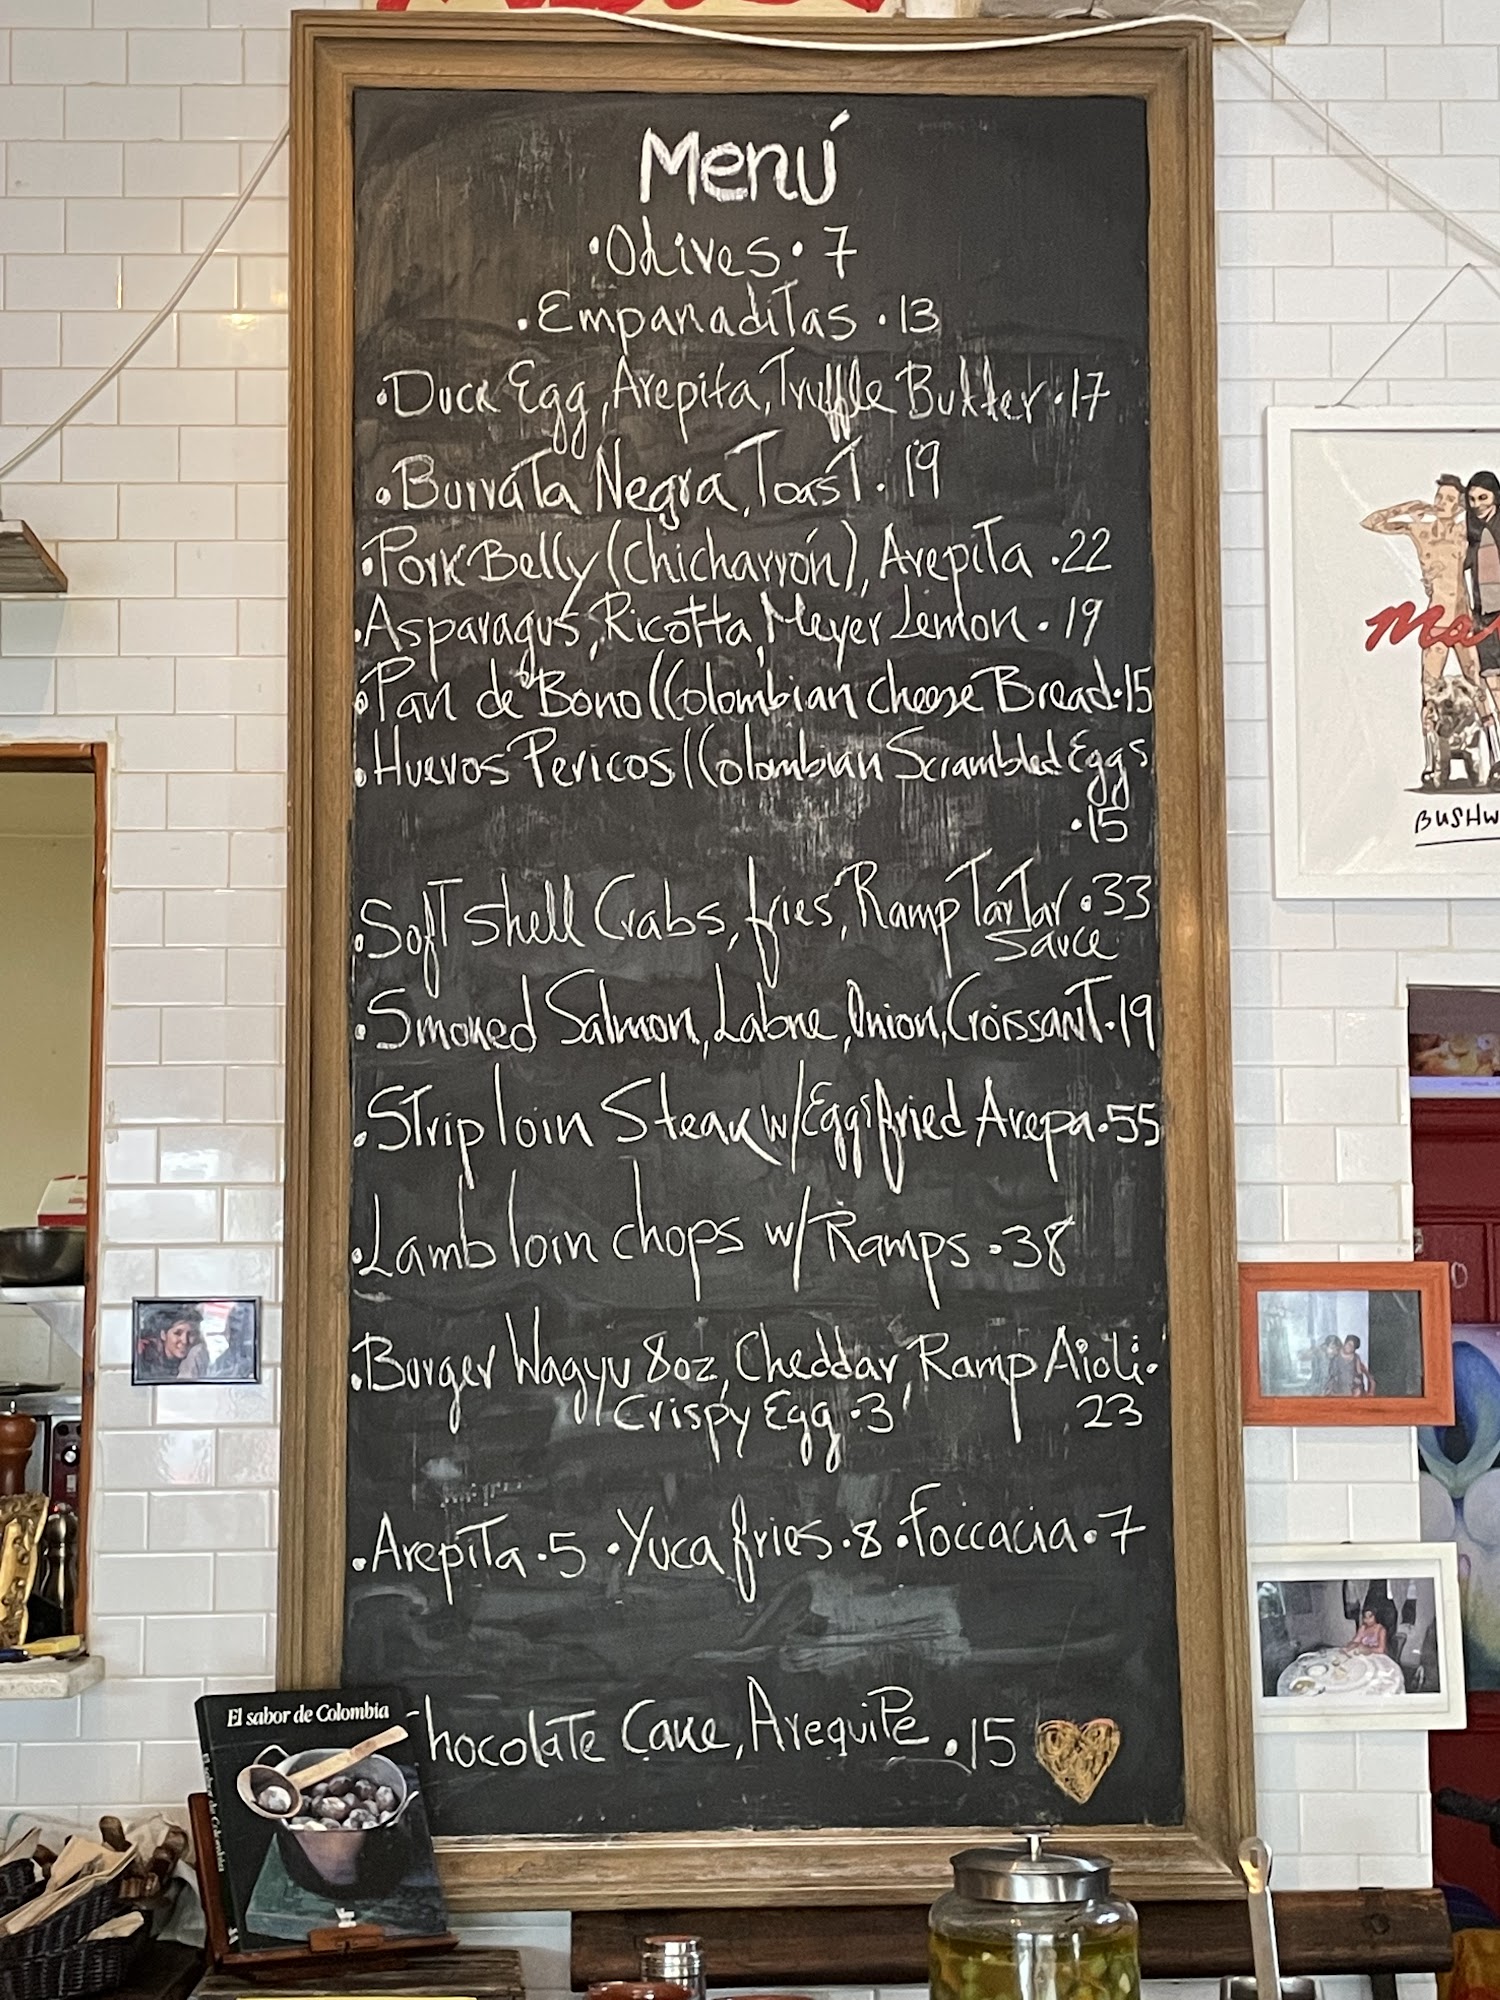 Menú
•Olives• 7
•Empanaditas •13
•Duck Egg, Arepita, Truffle Butter •17
•Burrata Negra, Toast. 19
•Pork Belly (Chicharrón), Arepita •22
•Asparagus, Ricotta, Meyer Lemon • 19
•Pan de Bono//Colombian Cheese Bread•15
•Huevos Pericos//Colombian Scrambled Eggs
•15
•Soft shell Crabs, fries, Ramp Tartar •33
Sauce
•Smoked Salmon, Labne, Onion, Croissant•19
•Strip loin Steak w/Eggs fried Arepa•55
•Lamb loin chops w/Ramps •38
•Burger Wagyu 8oz, Cheddar, Ramp Aioli•
//Crispy Egg •3
23
•Arepita •5 •Yuca fries •8 •Foccacia•7
hocolate Cake, Arequipe •15
El sabor de Colombia
BUSHW